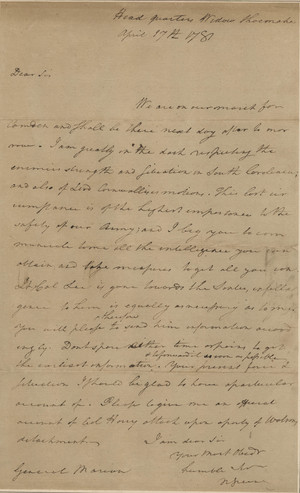 Head quarters Widow Shoemakes
April 17th 1781
Dear Sir
We are on our march for
Camden and shall be there next day after to mor
row. I am greatly in the dark respecting the
enemies strength and situation in South Carolina;
and also of Lord Cornwallis motions. The last cir
cumstance is of the highest importance to the
safety of our Army; and I beg you to com
municate to me all the intelligence you can
obtain and take measures to get all you can
Lt Col Lee is gone towards the Santee, intelli
gence to him is equally necessary as to me,
therefore
You will please to send him information accord
ingly. Dont spare either time or pains to get
& forward it as soon as possible
the earliest information. Your present force &
situation I should be glad to have a particular
account of. Please to give me an official
account of Col Horry attack upon a party of Watsons
detachment.
I am dear Sir
Your Most Obedt
humble Ser
N Greene
General Marion